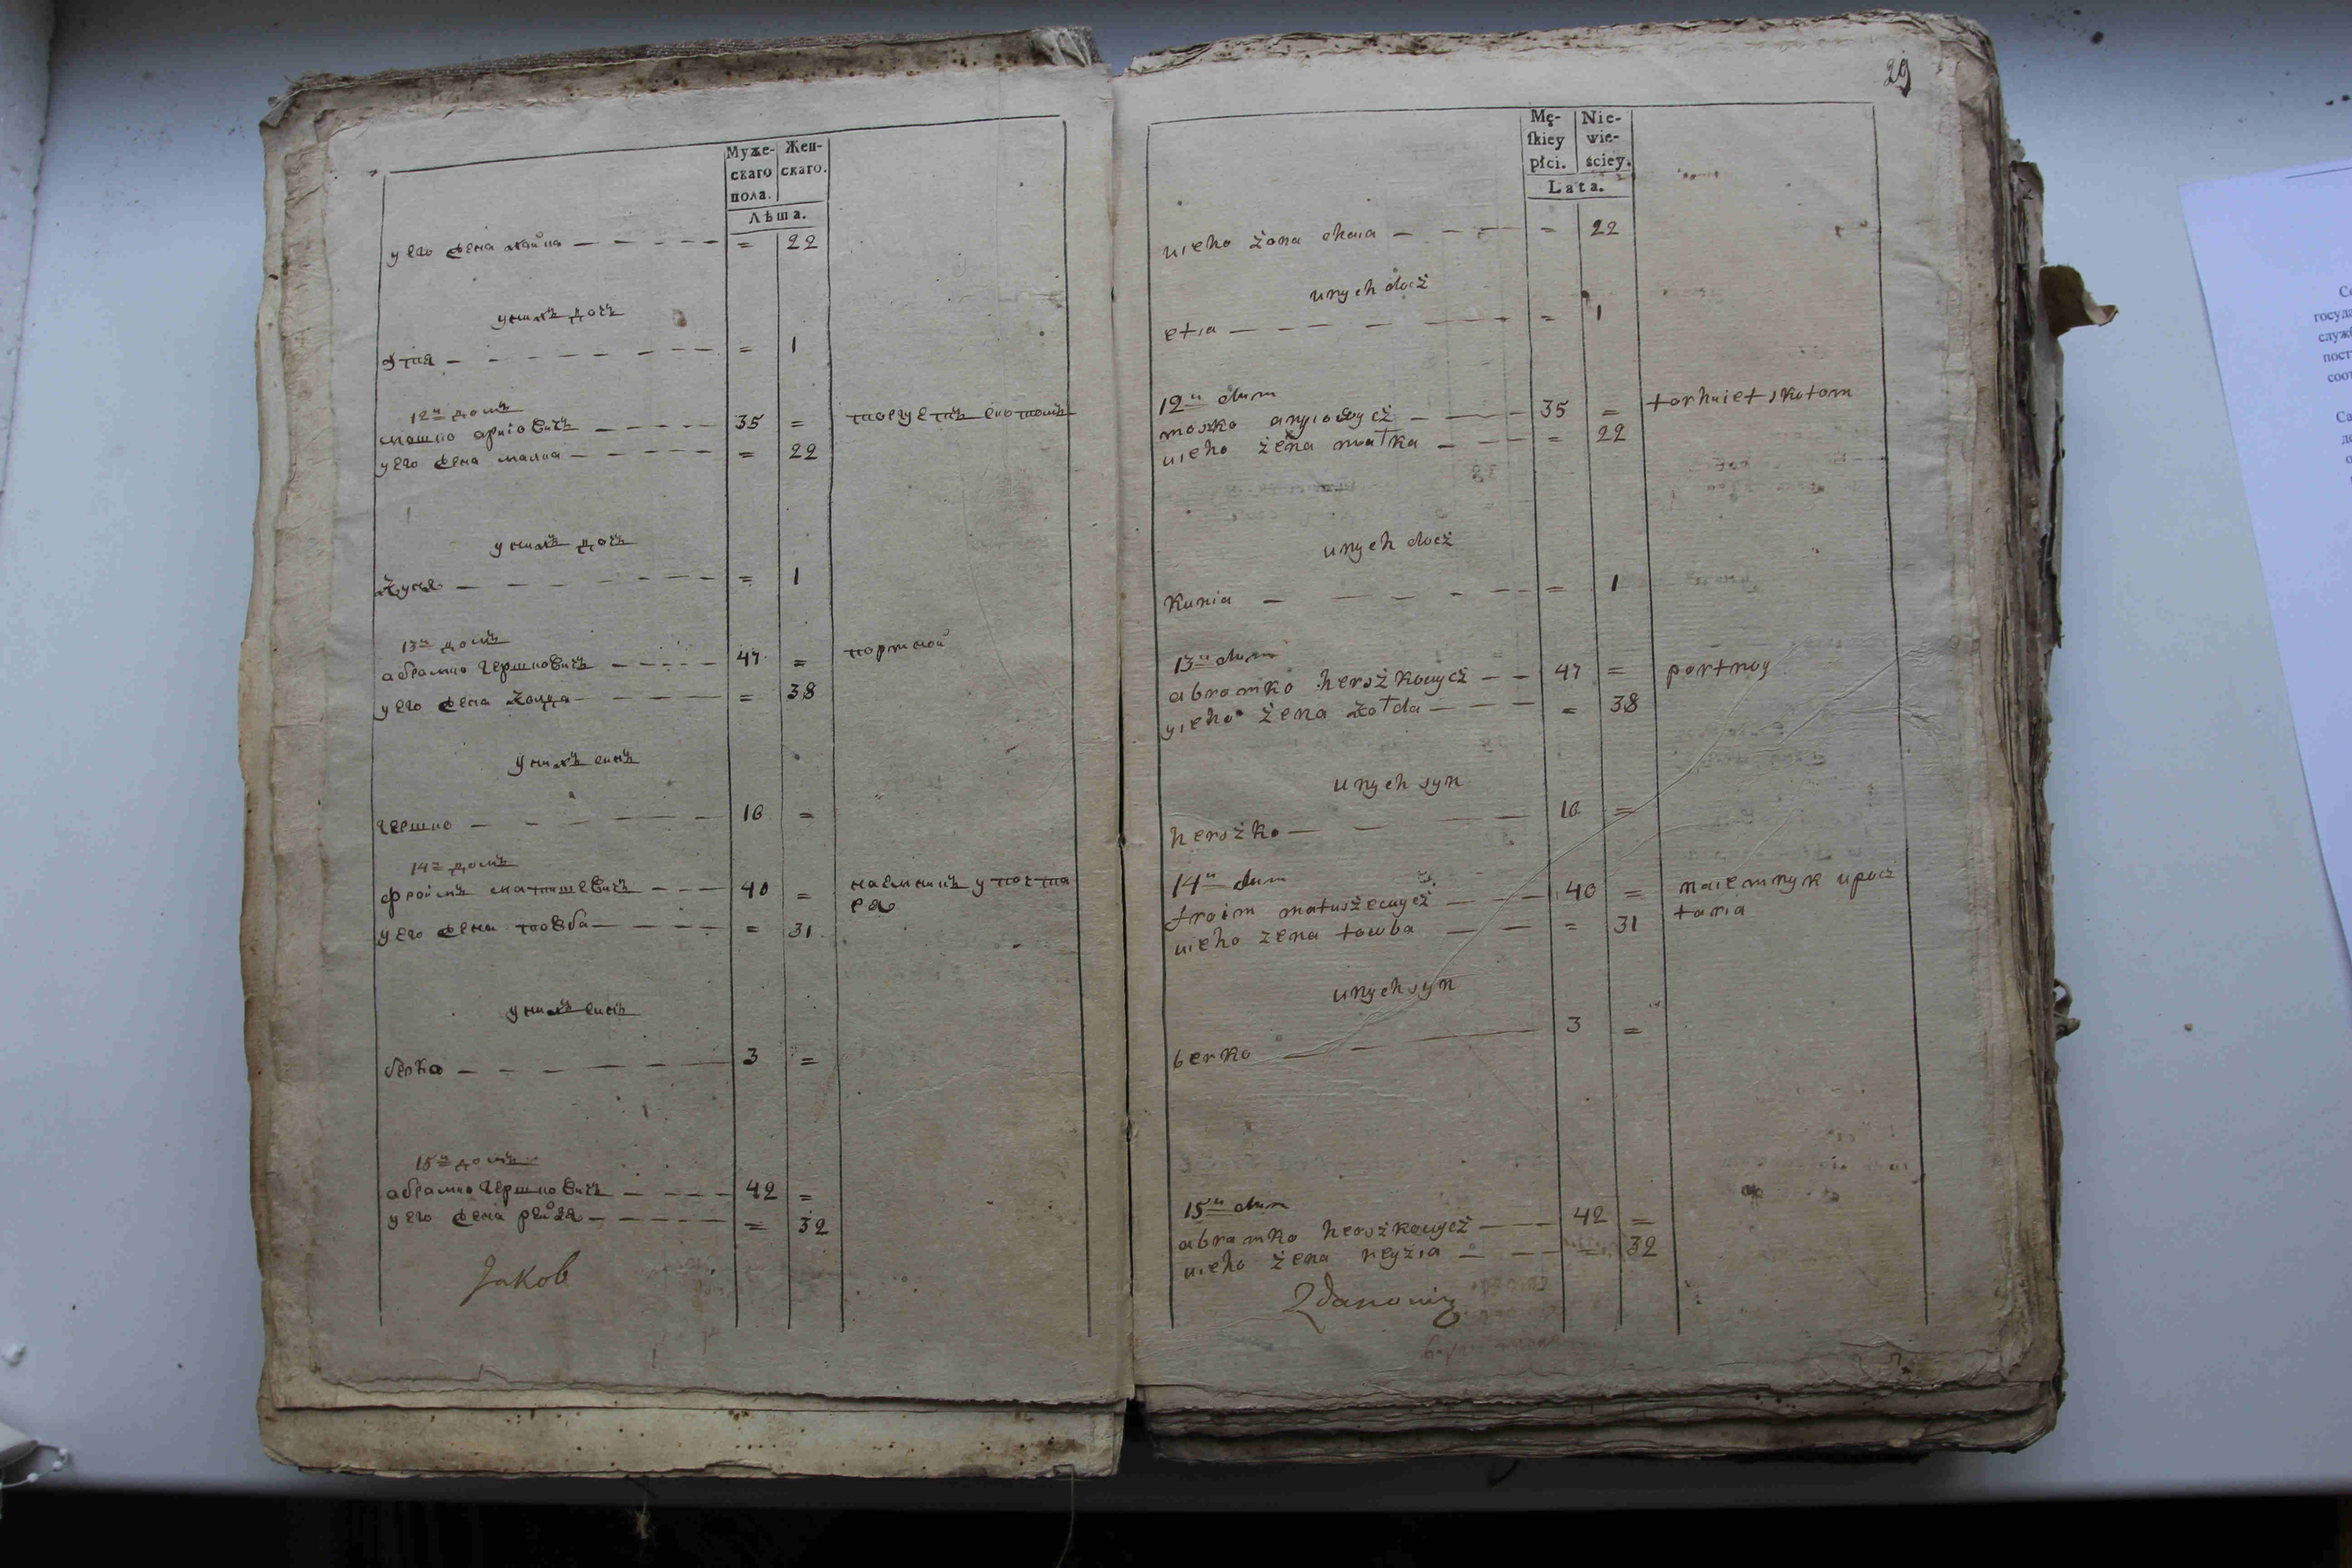 Муже-
скаго
пола.
Жен-
скаго.
Лѣта.
у его жена хаина — — — — = 22
унихъ дочъ
Этия — — — — — — = 1
12й домъ
мошко ариовичъ — — — — 35 = торгуетъ скотомъ
у его жена малка — — — — = 22
унихъ дочъ
куня — — — — — — = 1
13й домъ
абрамко гершковичъ — — — — 47 = портной
у его жена холда — — — = 38
унихъ синъ
гершко — — — — — 16 =
14й домъ
фроимъ матушевичъ — — — 40 = наемникъ у почта
ра
у его жена товба — — — — = 31
унихъ синъ
берко — — — — — — 3 =
15й домъ
абрамко гершковичъ — — — — 42 =
у его жена рейзя — — — — = 32
Jakob
29
Mę-
skiey
płci.
Nie-
wie-
ściey.
Lata.
uieho żona chaia — — — = 22
unych docż
etia — — — — — — = 1
12й dum
moszko aryiowycż — — — 35 = torhuiet skotom
uieho żena małka — — — = 22
unych docż
Kunia — — — — — — = 1
13й dum
abramko herszkowycż — — 47 = portnoy
yieho żena żołda — — — = 38
unych syn
herszko — — — — 16 =
14й dum
froim matuszewycż — — 40 = naiemnyk upocż
taria
uieho zena towba — — = 31
unych syn
berko — — — 3 =
15й dum
abramko herszkowycż — — 42 =
uieho żena reyzia — — — = 32
Zdanowicz